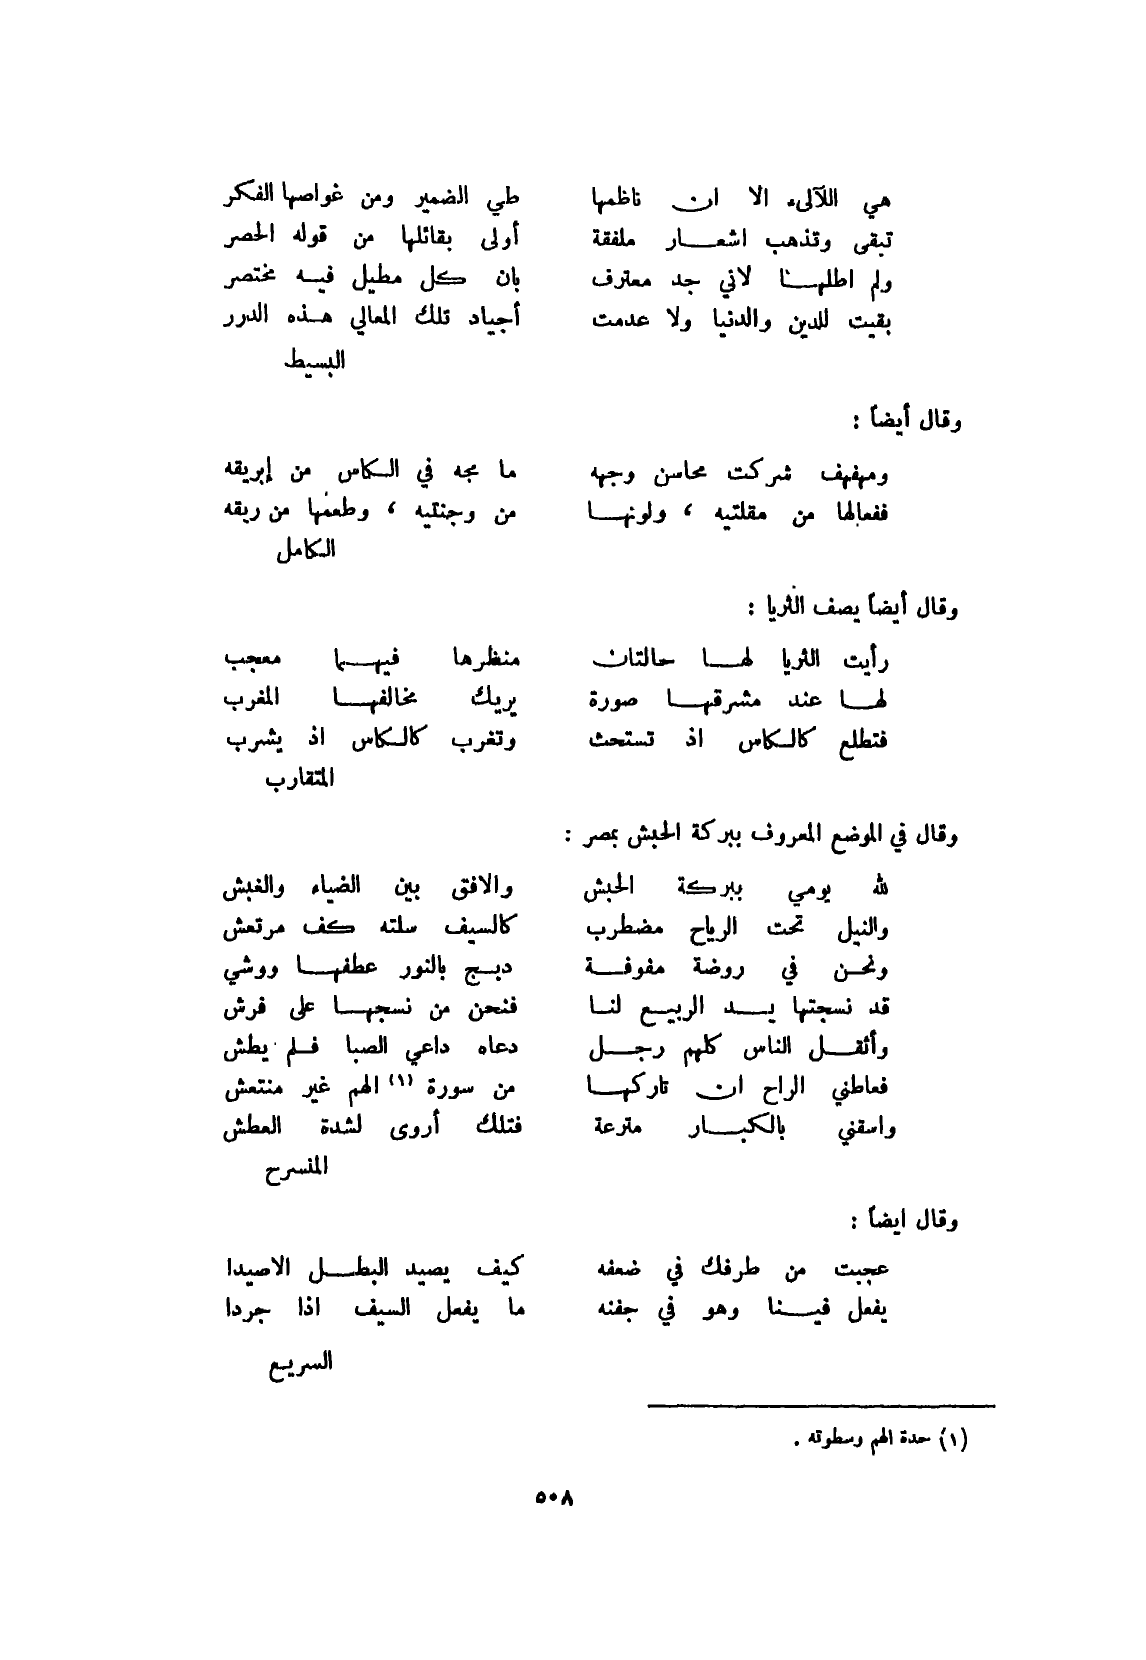 هي اللآلىء الا ان ناظمها طي الضمير ومن غواصها الفكر
تبقى وتذهب اشعار ملفقة أولى بقائلها من قوله الحصر
ولم اطلها لاني جد معترف بان كل مطيل فيه مختصر
بقيت للدين والدنيا ولا عدمت أجياد تلك المعالي هذه الدرر
البسيط
وقال أيضاً :
ومهفهف شركت محاسن وجهه ما مجه في الكاس من إبريقه
ففعالها من مقلتيه ، ولونها من وجنتيه ، وطعمها من ريقه
الكامل
وقال أيضاً يصف الثريا :
رأيت الثريا لها حالتان منظرها فيها معجب
لها عند مشرقها صورة يريك مخالفها المغرب
فتطلع كالكاس اذ تستحث وتغرب كالكاس اذ يشرب
المتقارب
وقال في الموضع المعروف ببركة الحبش بمصر :
لله يومي ببركة الحبش والافق بين الضياء والغبش
والنيل تحت الرياح مضطرب كالسيف سلته كف مرتعش
ونحن في روضة مفوفة دبج بالنور عطفها ووشي
قد نسجتها يد الربيع لنا فنحن من نسجها على فرش
وأثقل الناس كلهم رجل دعاه داعي الصبا فلم يطش
فعاطني الراح ان تاركها من سورة (١) الهم غير منتعش
واسقني بالكبار مترعة فتلك أروى لشدة العطش
المنسرح
وقال ايضاً :
عجبت من طرفك في ضعفه كيف يصيد البطل الاصيدا
يفعل فينا وهو في جفنه ما يفعل السيف اذا جردا
السريع
(١) حدة الهم وسطوته .
٥٠٨